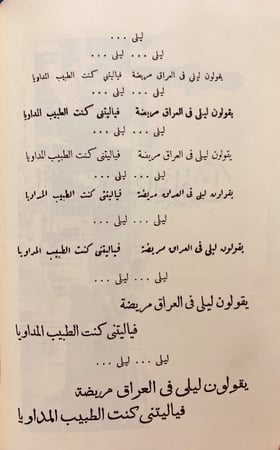 ليلى ...
ليلى ... ليلى ...
يقولون ليلى فى العراق مريضة فياليتنى كنت الطبيب المداويا
ليلى ... ليلى ...
يقولون ليلى فى العراق مريضة فياليتنى كنت الطبيب المداويا
ليلى ... ليلى ...
يقولون ليلى فى العراق مريضة فياليتنى كنت الطبيب المداويا
ليلى ... ليلى ...
يقولون ليلى فى العراق مريضة فياليتنى كنت الطبيب المداويا
ليلى ... ليلى ...
يقولون ليلى فى العراق مريضة فياليتنى كنت الطبيب المداويا
ليلى ... ليلى ...
يقولون ليلى فى العراق مريضة
فياليتنى كنت الطبيب المداويا
ليلى ... ليلى ...
يقولون ليلى فى العراق مريضة
فياليتنى كنت الطبيب المداويا